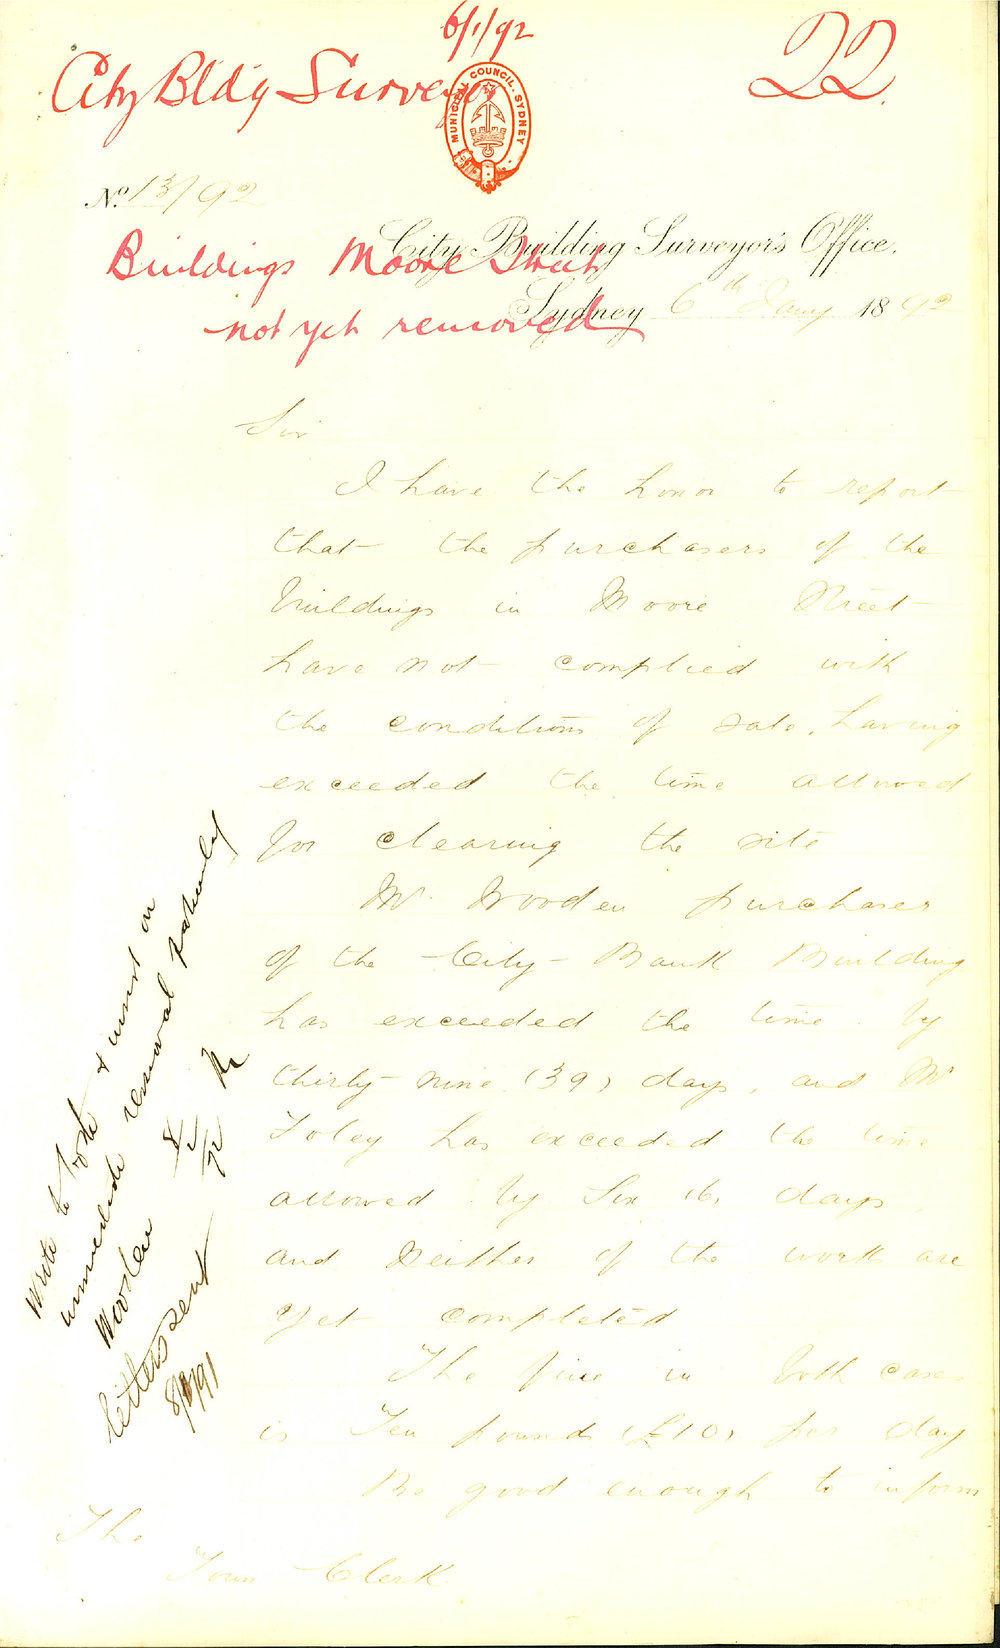 6/1/92
City Bldg Surveyor
22
MUNICIPAL COUNCIL. SYDNEY
No. 13/92
City Building Surveyor's Office.
Buildings Moore Street
not yet removed
Sydney 6th Jany 1892
Sir
I have the honor to report
that the purchasers of the
buildings in Moore Street
have not complied with
the conditions of sale, having
exceeded the time allowed
for clearing the site
Mr. Wooden purchaser
of the City Bank Building
has exceeded the time by
thirty nine (39) days, and Mr
Foley has exceeded the time
allowed by Six (6) days,
and Neither of the work are
yet completed
The fine in both cases
is Ten pounds (£10) per day
Be good enough to inform
The
Town Clerk
Wrote to both & insist on
immediate removal
Wooden
Letters sent
8/1/91